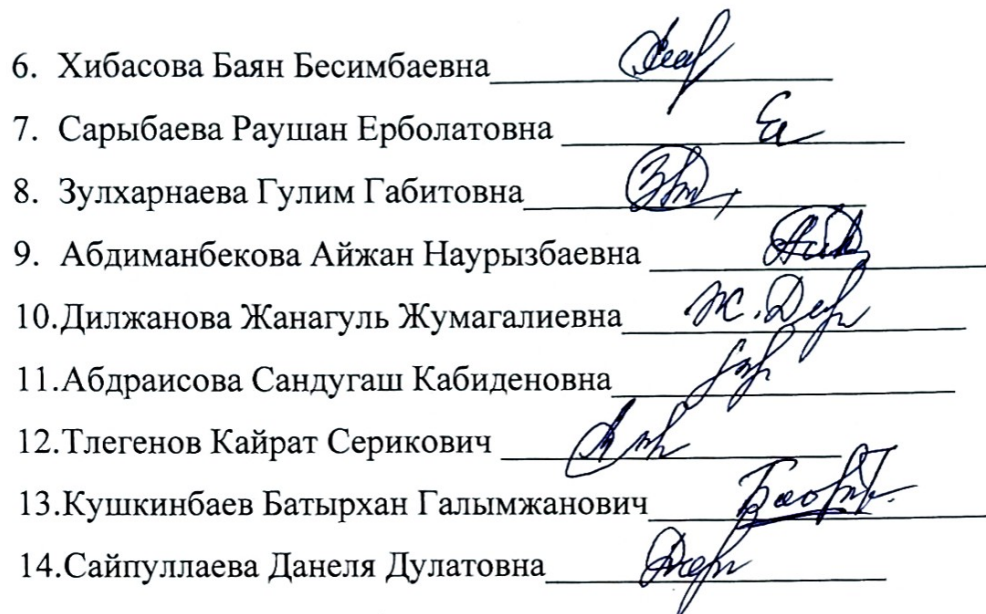 6. Хибасова Баян Бесимбаевна
7. Сарыбаева Раушан Ерболатовна
8. Зулхарнаева Гулим Габитовна
9. Абдиманбекова Айжан Наурызбаевна
10.Дилжанова Жанагуль Жумагалиевна
11.Абдраисова Сандугаш Кабиденовна
12.Тлегенов Кайрат Серикович
13.Кушкинбаев Батырхан Галымжанович
14.Сайпуллаева Данеля Дулатовна